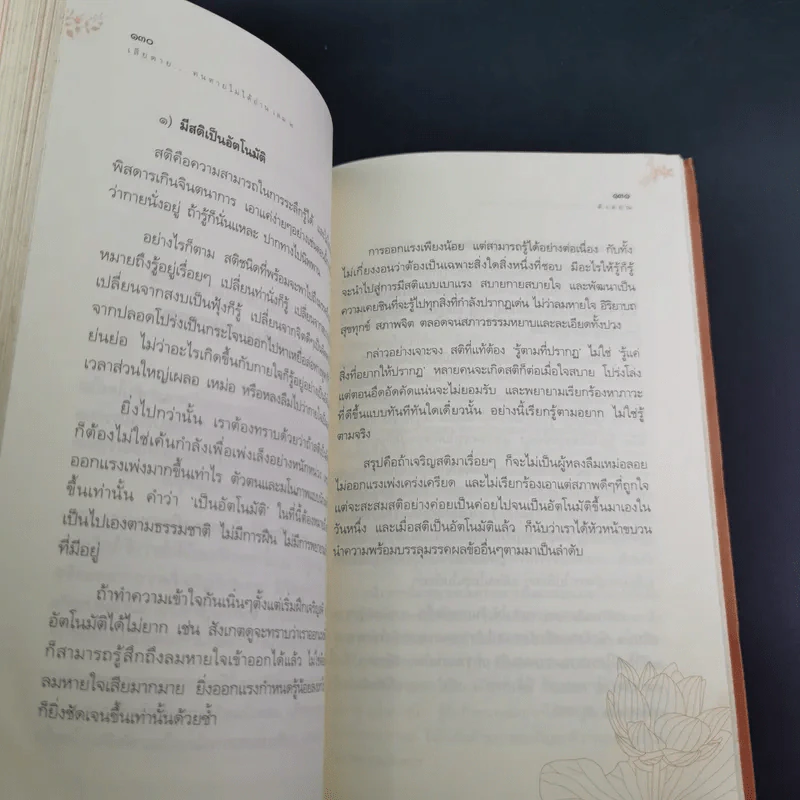 ๑๓๐
เสียดาย... คนตายไม่ได้อ่าน เล่ม ๒
๑) มีสติเป็นอัตโนมัติ
สติคือความสามารถในการระลึกรู้ได้
พิสดารเกินจินตนาการ เอาแค่ง่ายๆอย่างเช่น
ว่ากายนั่งอยู่ ถ้ารู้ก็นั่นแหละ ปากทางไปนิพพาน
อย่างไรก็ตาม สติชนิดที่พร้อมจะพาไปถึง
หมายถึงรู้อยู่เรื่อยๆ เปลี่ยนท่านั่งก็รู้ เปลี่ยนจาก
เปลี่ยนจากสงบเป็นฟุ้งก็รู้ เปลี่ยนจากจิตดีๆเป็น
จากปลอดโปร่งเป็นกระโจนออกไปหาเหยื่อล่อทาง
ย่นย่อ ไม่ว่าอะไรเกิดขึ้นกับกายใจก็รู้อยู่อย่างเป็น
เวลาส่วนใหญ่เผลอ เหม่อ หรือหลงลืมไปว่ากายใจ
ยิ่งไปกว่านั้น เราต้องทราบด้วยว่าถ้าสติเป็น
ก็ต้องไม่ใช่เค้นกำลังเพื่อเพ่งเล็งอย่างหนักหน่วง
ออกแรงเพ่งมากขึ้นเท่าไร ตัวตนและมโนภาพ
ขึ้นเท่านั้น คำว่า 'เป็นอัตโนมัติ' ในที่นี้ต้อง
เป็นไปเองตามธรรมชาติ ไม่มีการฝืน ไม่มีการพยายาม
ที่มีอยู่
ถ้าทำความเข้าใจกันเนิ่นๆตั้งแต่เริ่มฝึกเจริญสติ
อัตโนมัติได้ไม่ยาก เช่น สังเกตดูจะทราบว่าเราออกแรง
ก็สามารถรู้สึกถึงลมหายใจเข้าออกได้แล้ว ไม่ใช่
ลมหายใจเสียมากมาย ยิ่งออกแรงกำหนดรู้น้อยลง
ก็ยิ่งชัดเจนขึ้นเท่านั้นด้วยซ้ำ
๑๓๑
การออกแรงเพียงน้อย แต่สามารถรู้ได้อย่างต่อเนื่อง กับทั้ง
ไม่เกี่ยงงอนว่าต้องเป็นเฉพาะสิ่งใดสิ่งหนึ่งที่ชอบ มีอะไรให้รู้ก็รู้
จะนำไปสู่การมีสติแบบเบาแรง สบายกายสบายใจ และพัฒนาเป็น
ความเคยชินที่จะรู้ไปทุกสิ่งที่กำลังปรากฏเด่น ไม่ว่าลมหายใจ อิริยาบถ
สุขทุกข์ สภาพจิต ตลอดจนสภาวธรรมหยาบและละเอียดทั้งปวง
กล่าวอย่างเจาะจง สติที่แท้ต้อง 'รู้ตามที่ปรากฏ' ไม่ใช่ 'รู้แค่
สิ่งที่อยากให้ปรากฏ' หลายคนจะเกิดสติก็ต่อเมื่อใจสบาย โปร่งโล่ง
แต่ตอนอึดอัดคัดแน่นจะไม่ยอมรับ และพยายามเรียกร้องหาภาวะ
ที่ดีขึ้นแบบทันทีทันใดเดี๋ยวนั้น อย่างนี้เรียกรู้ตามอยาก ไม่ใช่รู้
ตามจริง
สรุปคือถ้าเจริญสติมาเรื่อยๆ ก็จะไม่เป็นผู้หลงลืมเหม่อลอย
ไม่ออกแรงเพ่งเคร่งเครียด และไม่เรียกร้องเอาแต่สภาพดีๆที่ถูกใจ
แต่จะสะสมสติอย่างค่อยเป็นค่อยไปจนเป็นอัตโนมัติขึ้นมาเองใน
วันหนึ่ง และเมื่อสติเป็นอัตโนมัติแล้ว ก็นับว่าเราได้หัวหน้าขบวน
นำความพร้อมบรรลุมรรคผลข้ออื่นๆตามมาเป็นลำดับ